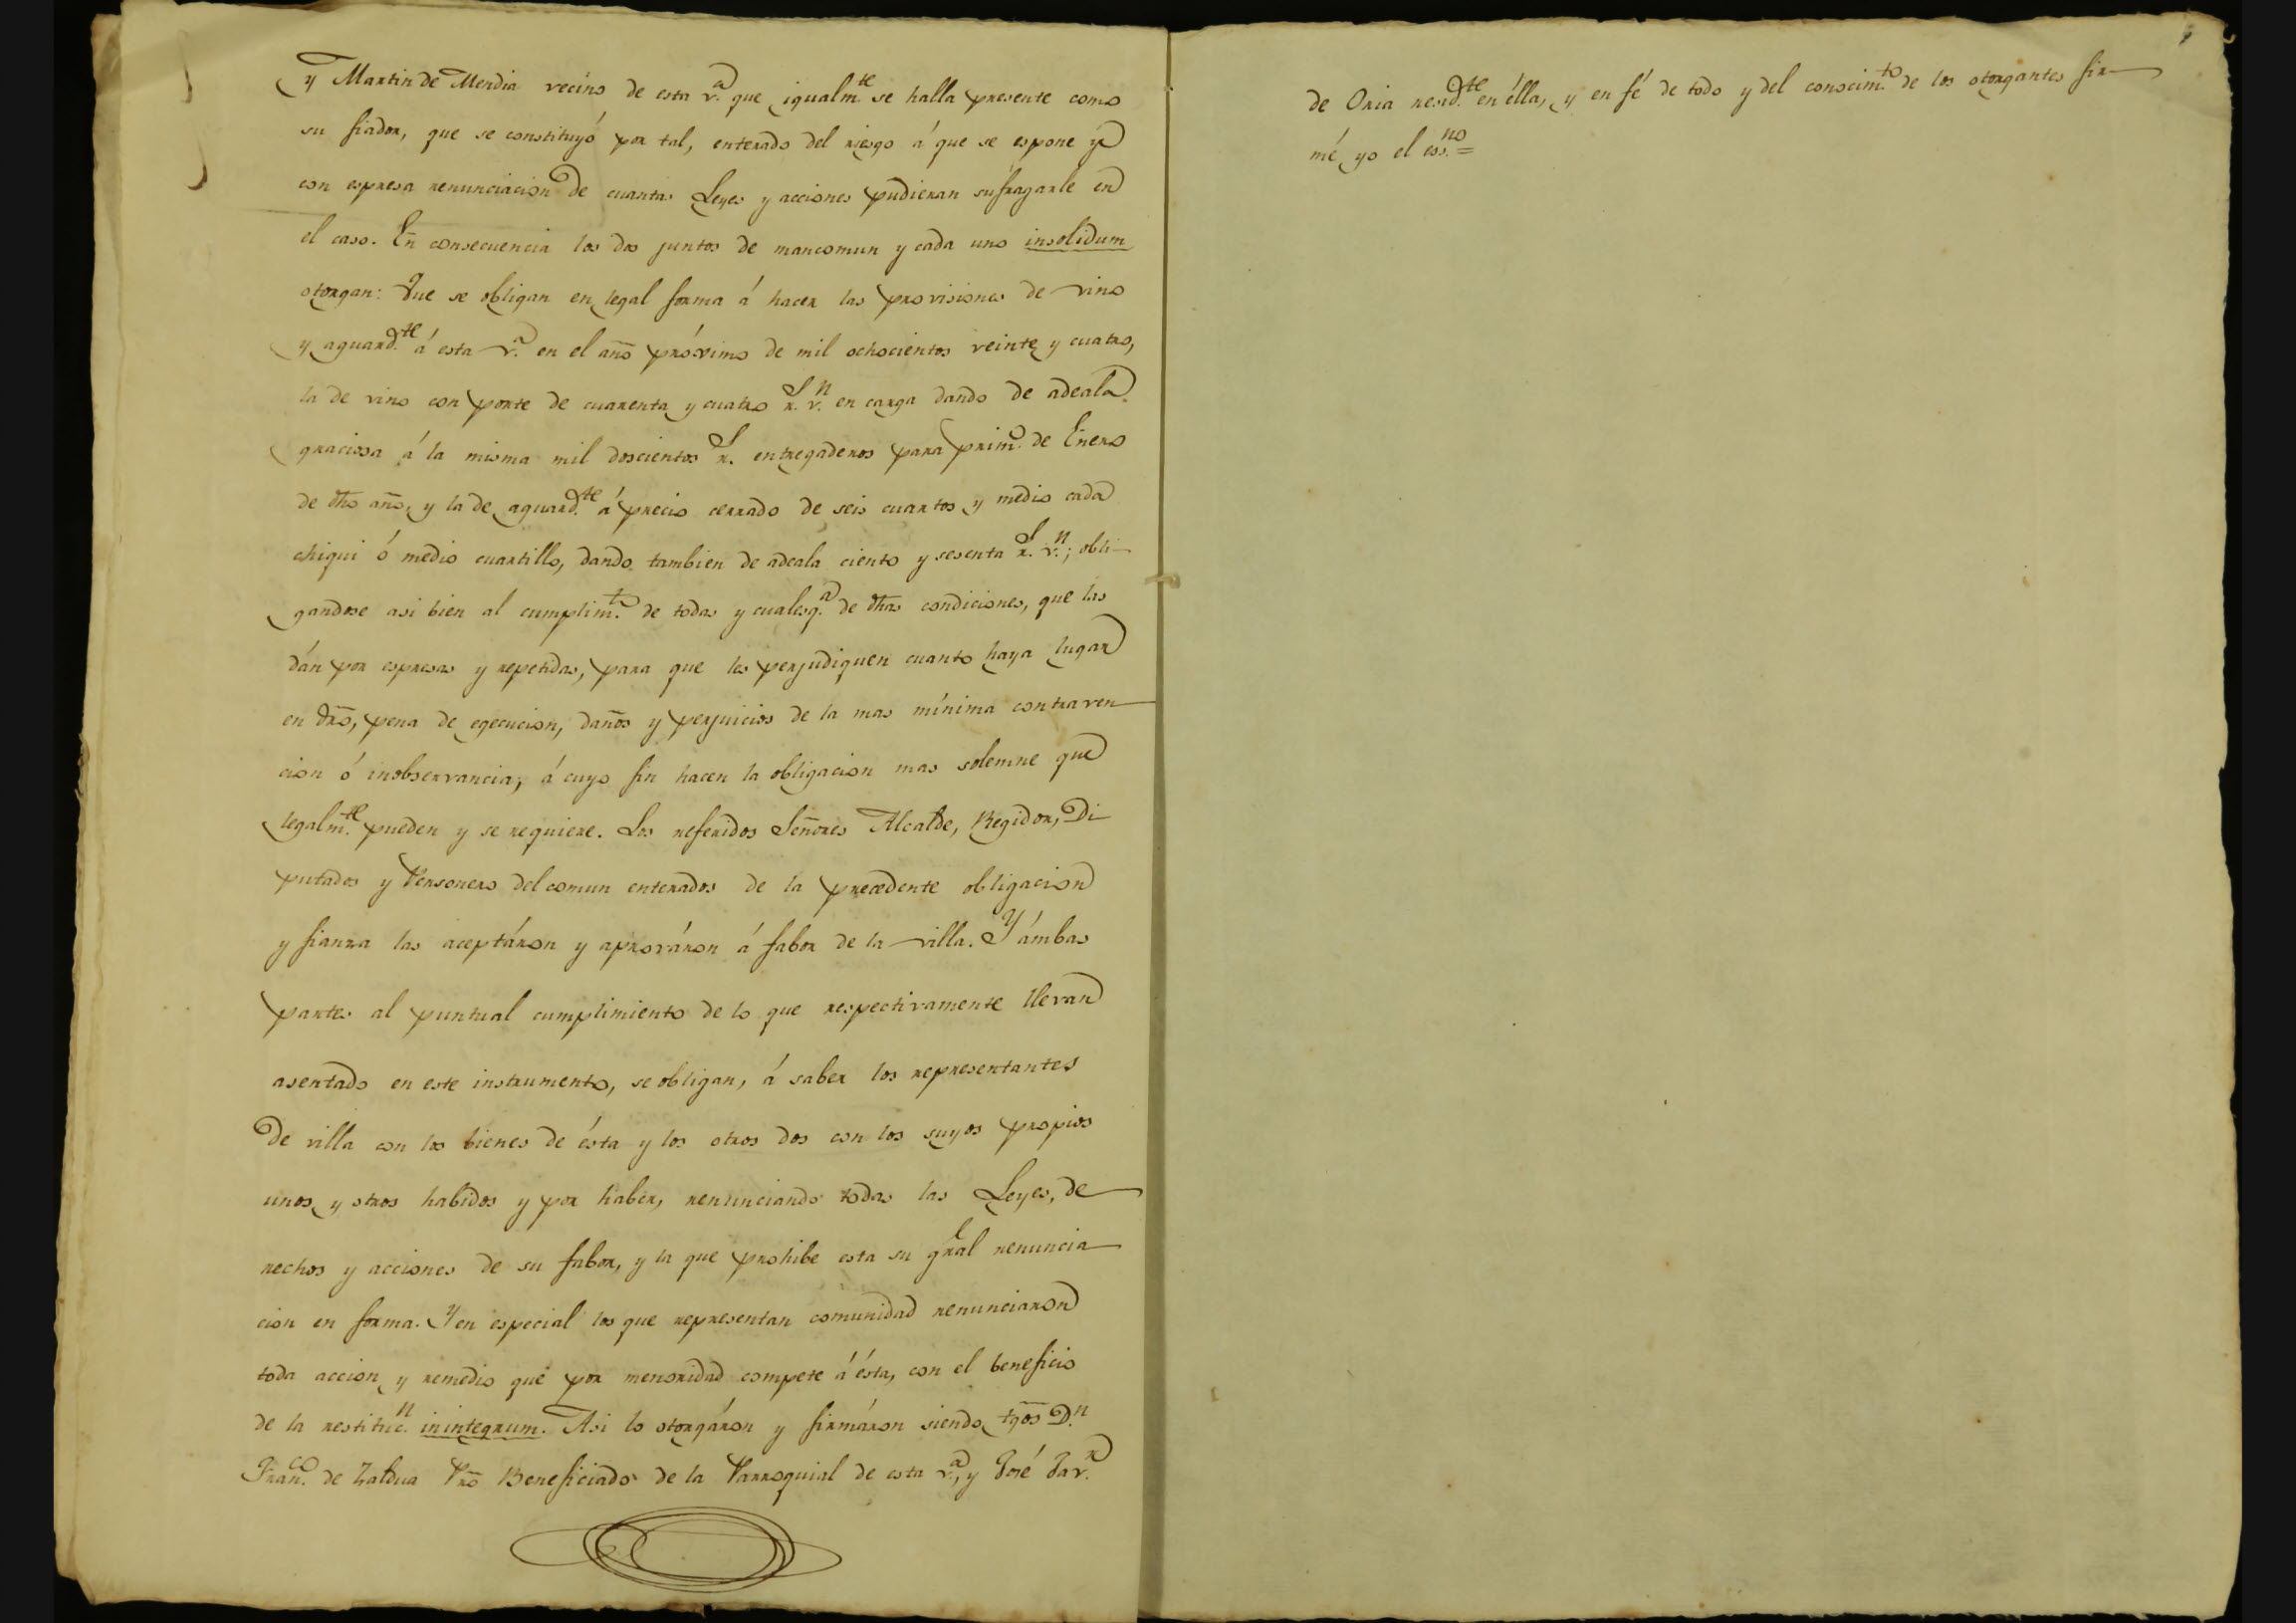 y Martin de Mendia vecino de esta v.ª que igualm.te se halla presente como
su fiador, que se constituyó por tal, enterado del riesgo á que se espone y
con espresa renunciacion de cuantas Leyes y acciones pudieran sufragarle en
el caso. En consecuencia los dos juntos de mancomun y cada uno insolidum
otorgan: Que se obligan en legal forma á hacer las provisiones de vino
y aguard.te á esta v.ª en el año próximo de mil ochocientos veinte y cuatro,
la de vino con porte de cuarenta y cuatro r.s v.n en carga dando de adeala
graciosa á la misma mil doscientos r.s entregaderos para prim.o de Enero
de dho año, y la de aguard.te á precio cerrado de seis cuartos y medio cada
chiqui ó medio cuartillo, dando tambien de adeala ciento y sesenta r.s v.n; obli-
gandose asi bien al cumplim.to de todas y cualesq.ª de dhas condiciones, que las
dán por espresas y repetidas, para que les perjudiquen cuanto haya lugar
en dro, pena de egecucion, daños y perjuicios de la mas mínima contraven-
cion ó inobservancia; á cuyo fin hacen la obligacion mas solemne que
legalm.te pueden y se requiere. Los referidos Señores Alcalde, Regidor, Di-
putados y Personero del comun enterados de la precedente obligacion
y fianza las aceptáron y aprováron á fabor de la villa. Y ámbas
partes al puntual cumplimiento de lo que respectivamente llevan
asentado en este instrumento, se obligan, á saber los representantes
de villa con los bienes de ésta y los otros dos con los suyos propios
unos y otros habidos y por haber, renunciando todas las Leyes, de-
rechos y acciones de su fabor, y la que prohibe esta su gral renuncia-
cion en forma. Y en especial los que representan comunidad renunciaron
toda accion y remedio que por menoridad compete á ésta, con el beneficio
de la restituc.n inintegrum. Asi lo otorgáron y firmáron siendo tgos D.n
Fran.co de Zaldua Pro Beneficiado de la Parroquial de esta v.ª, y José Jav.r
de Oria resid.te en élla, y en fé de todo y del conocim.to de los otorgantes fir-
mé yo el ess.no =